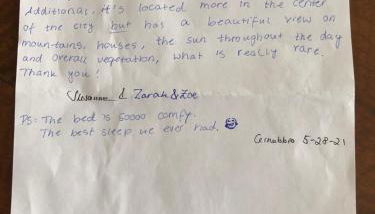 Additional, it's located more in the center
of the city but has a beautiful view on
mountains, houses, the sun throughout the day
and overall vegetation, what is really rare.
Thank you!
& Zarah & Zoe
PS: The bed is soooo comfy.
The best sleep we ever had.
Cernobbio 5-28-21